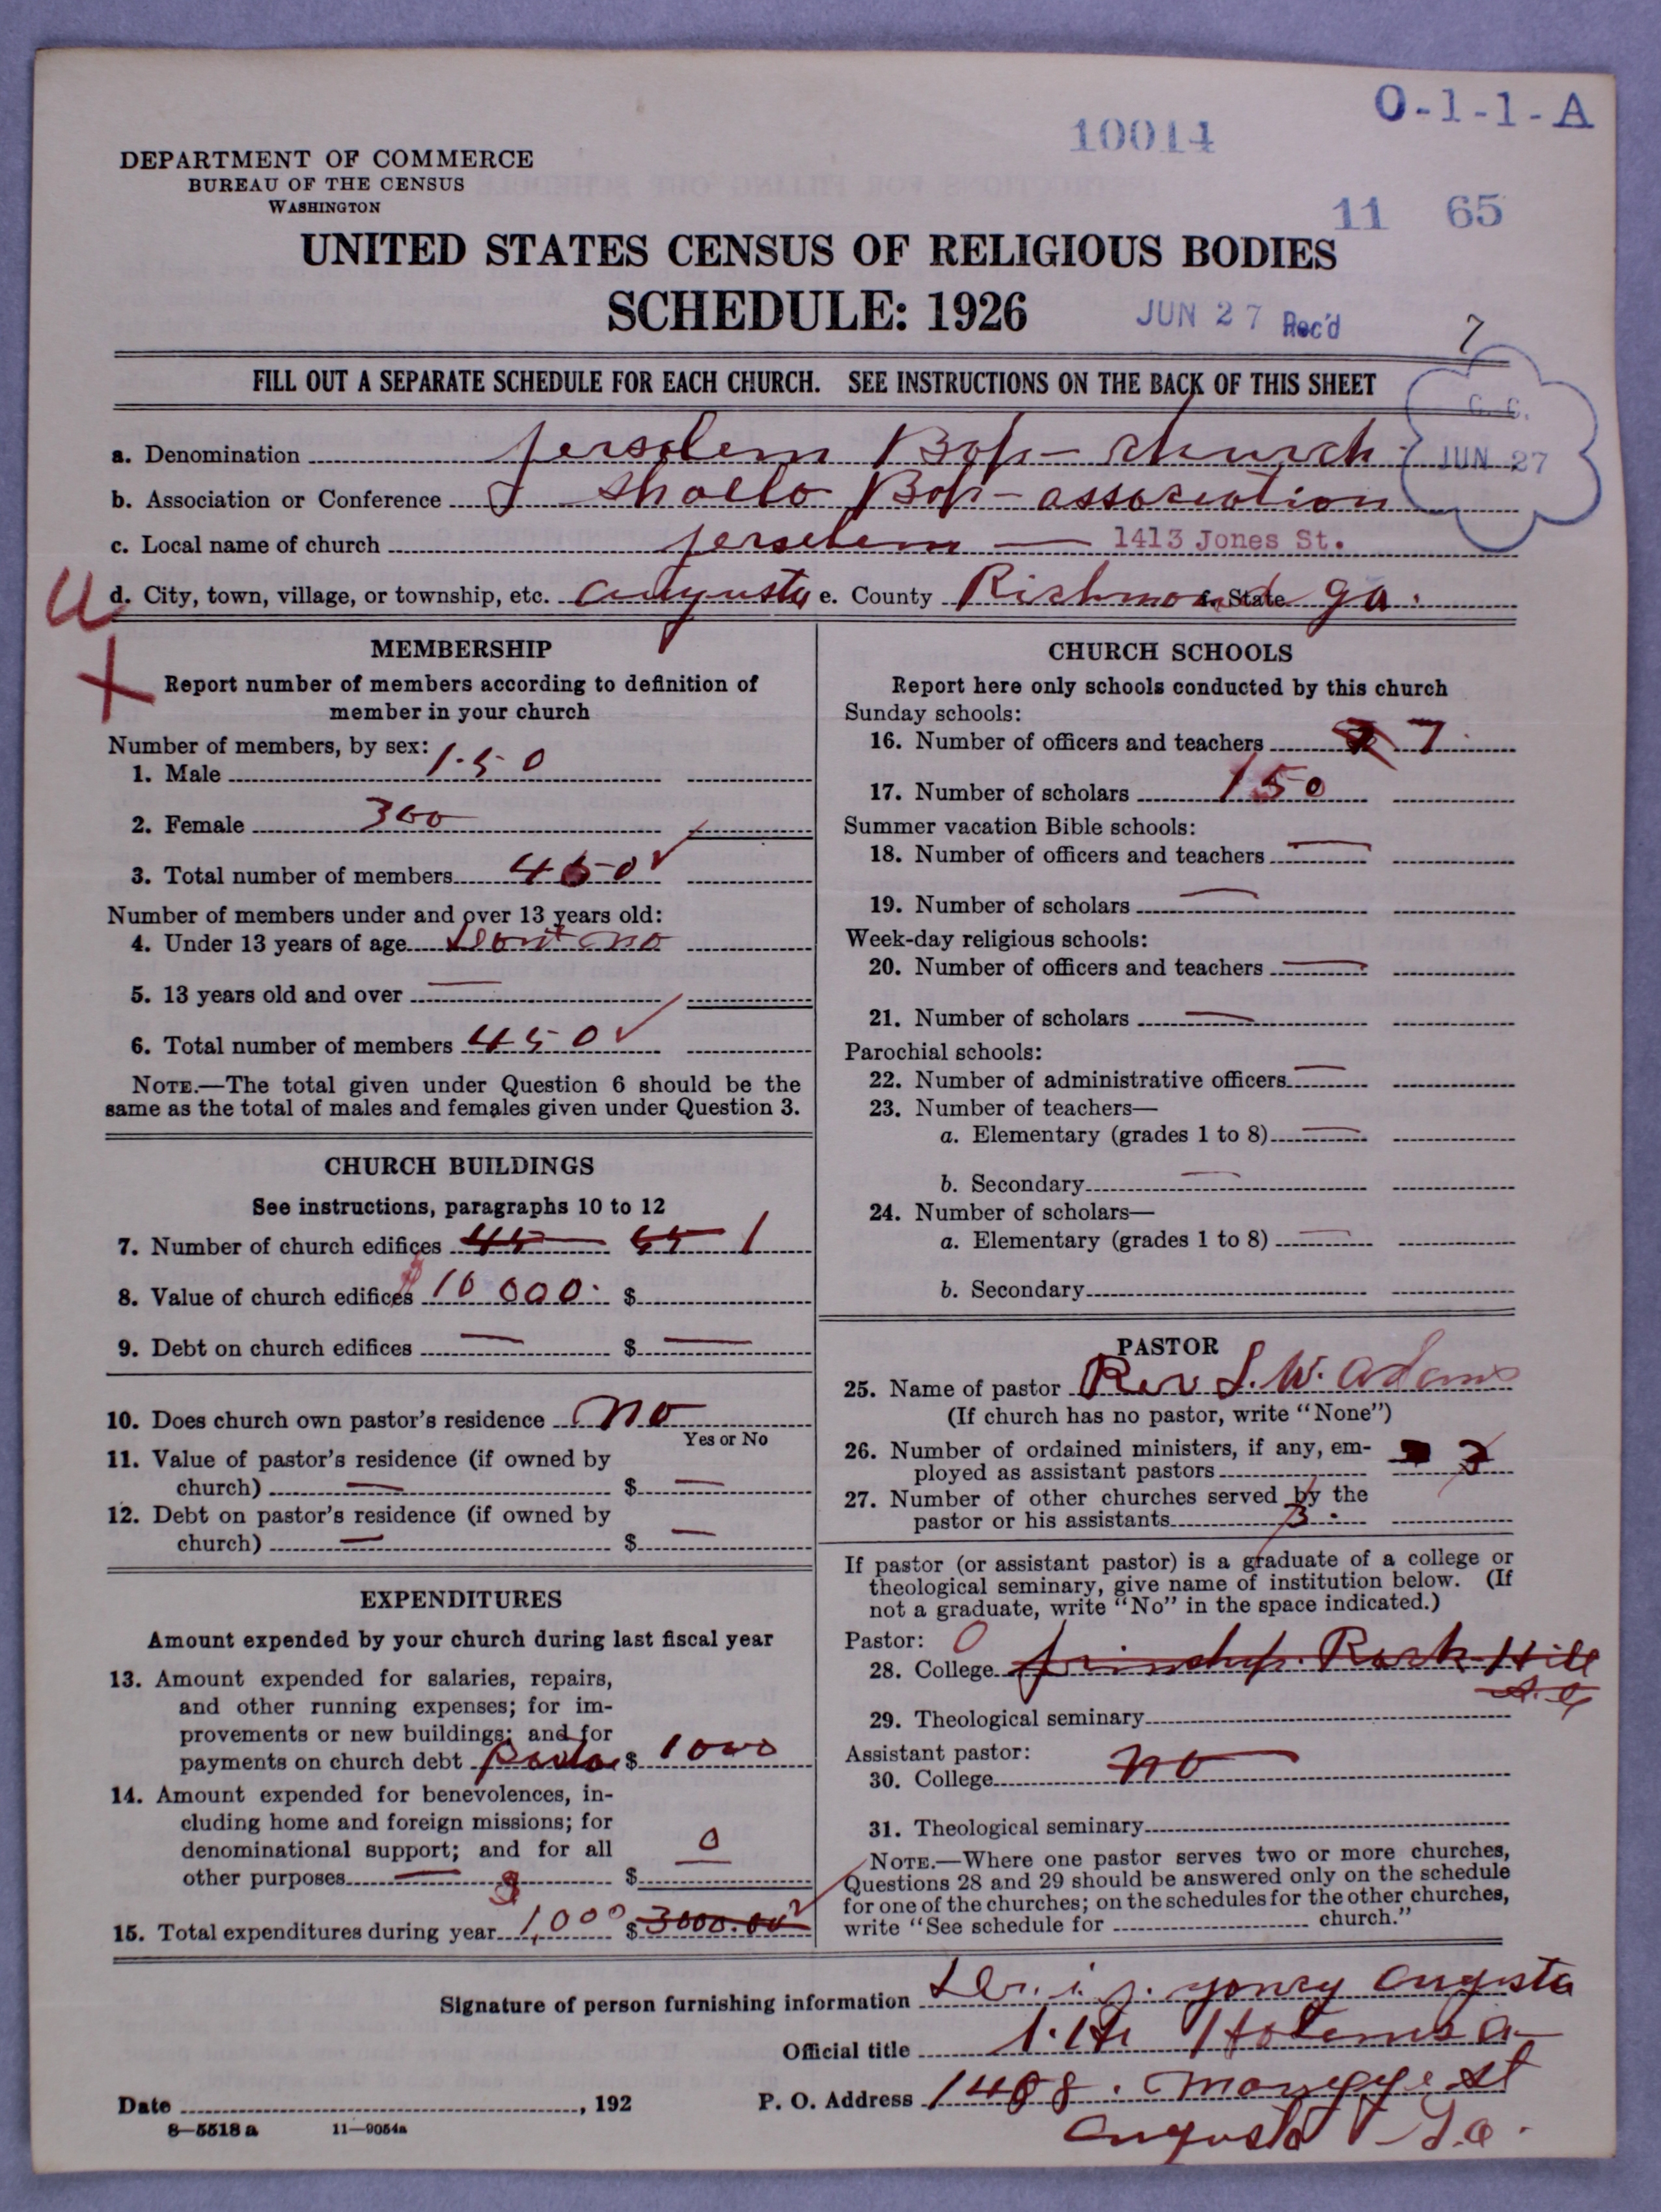 O-1-1-A
10014
DEPARTMENT OF COMMERCE
BUREAU OF THE CENSUS
WASHINGTON
11 65
UNITED STATES CENSUS OF RELIGIOUS BODIES
SCHEDULE: 1926
JUN 27 Rec'd
7
FILL OUT A SEPARATE SCHEDULE FOR EACH CHURCH. SEE INSTRUCTIONS ON THE BACK OF THIS SHEET
C. C.
JUN 27
a. Denomination Jersolem Bap- church
b. Association or Conference Shoelo Bap- assosiation
c. Local name of church Jerselem — 1413 Jones St.
U
d. City, town, village, or township, etc. Augusta e. County Richmond f. State Ga.
X
MEMBERSHIP
Report number of members according to definition of
member in your church
Number of members, by sex:
1. Male 150
2. Female 300
3. Total number of members 450
Number of members under and over 13 years old:
4. Under 13 years of age Don't no
5. 13 years old and over —
6. Total number of members 450
NOTE.—The total given under Question 6 should be the
same as the total of males and females given under Question 3.
CHURCH BUILDINGS
See instructions, paragraphs 10 to 12
7. Number of church edifices 45 55 1
8. Value of church edifices $10 000. $
9. Debt on church edifices — $ —
10. Does church own pastor's residence no
Yes or No
11. Value of pastor's residence (if owned by
church) — $ —
12. Debt on pastor's residence (if owned by
church) — $ —
EXPENDITURES
Amount expended by your church during last fiscal year
13. Amount expended for salaries, repairs,
and other running expenses; for im-
provements or new buildings; and for
payments on church debt $ 1000
14. Amount expended for benevolences, in-
cluding home and foreign missions; for
denominational support; and for all
other purposes — $ 0
15. Total expenditures during year 1,000 $ 3000.00
CHURCH SCHOOLS
Report here only schools conducted by this church
Sunday schools:
16. Number of officers and teachers 7
17. Number of scholars 150
Summer vacation Bible schools:
18. Number of officers and teachers —
19. Number of scholars —
Week-day religious schools:
20. Number of officers and teachers —
21. Number of scholars —
Parochial schools:
22. Number of administrative officers —
23. Number of teachers—
a. Elementary (grades 1 to 8) —
b. Secondary —
24. Number of scholars—
a. Elementary (grades 1 to 8) —
b. Secondary
PASTOR
25. Name of pastor Rev S. W. Adams
(If church has no pastor, write "None")
26. Number of ordained ministers, if any, em-
ployed as assistant pastors 3
27. Number of other churches served by the
pastor or his assistants 3.
If pastor (or assistant pastor) is a graduate of a college or
theological seminary, give name of institution below. (If
not a graduate, write "No" in the space indicated.)
Pastor: 0
28. College frindship Rock Hill
S.C
29. Theological seminary
Assistant pastor:
30. College no
31. Theological seminary
NOTE.—Where one pastor serves two or more churches,
Questions 28 and 29 should be answered only on the schedule
for one of the churches; on the schedules for the other churches,
write "See schedule for church."
Signature of person furnishing information Augusta
Official title
Date , 192
P. O. Address St
Augusta Ga.
8—5518 a 11—9054a